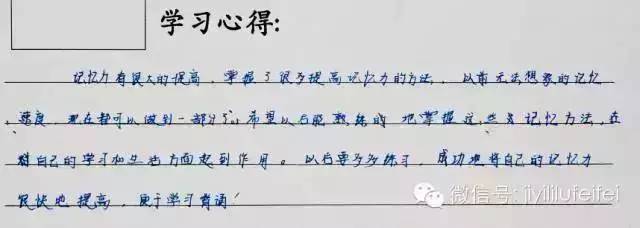 学习心得:
记忆力有很大的提高，掌握了很多提高记忆力的方法。以前无法想象的记忆
速度，现在都可以做到一部分了，希望以后能熟练的把掌握这些记忆方法，在
对自己的学习和生活方面起到作用。以后要多多练习，成功地将自己的记忆力
很快地提高，便于学习背诵！
微信号: jyliliufeifei